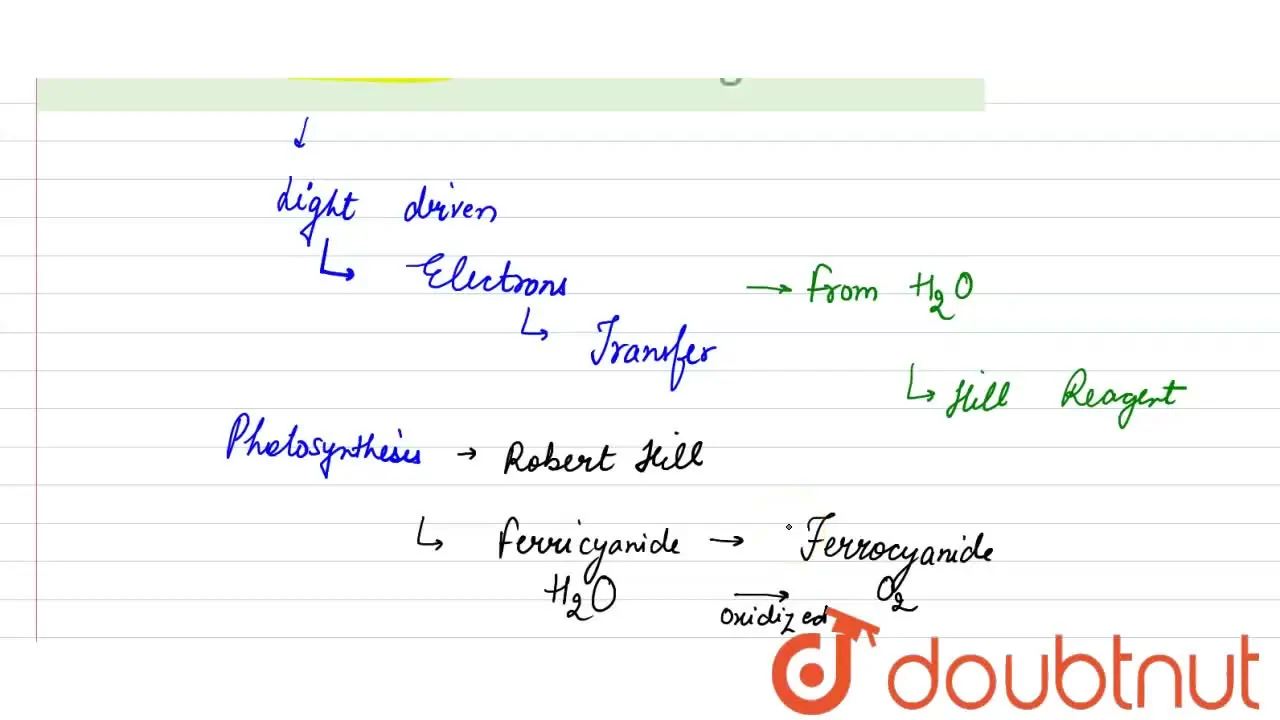 ↓
Light driven
↳ Electrons → from H2O
↳ Transfer
↳ Hill Reagent
Photosynthesis → Robert Hill
↳ Ferricyanide → Ferrocyanide
H2O → O2
Oxidized
doubtnut